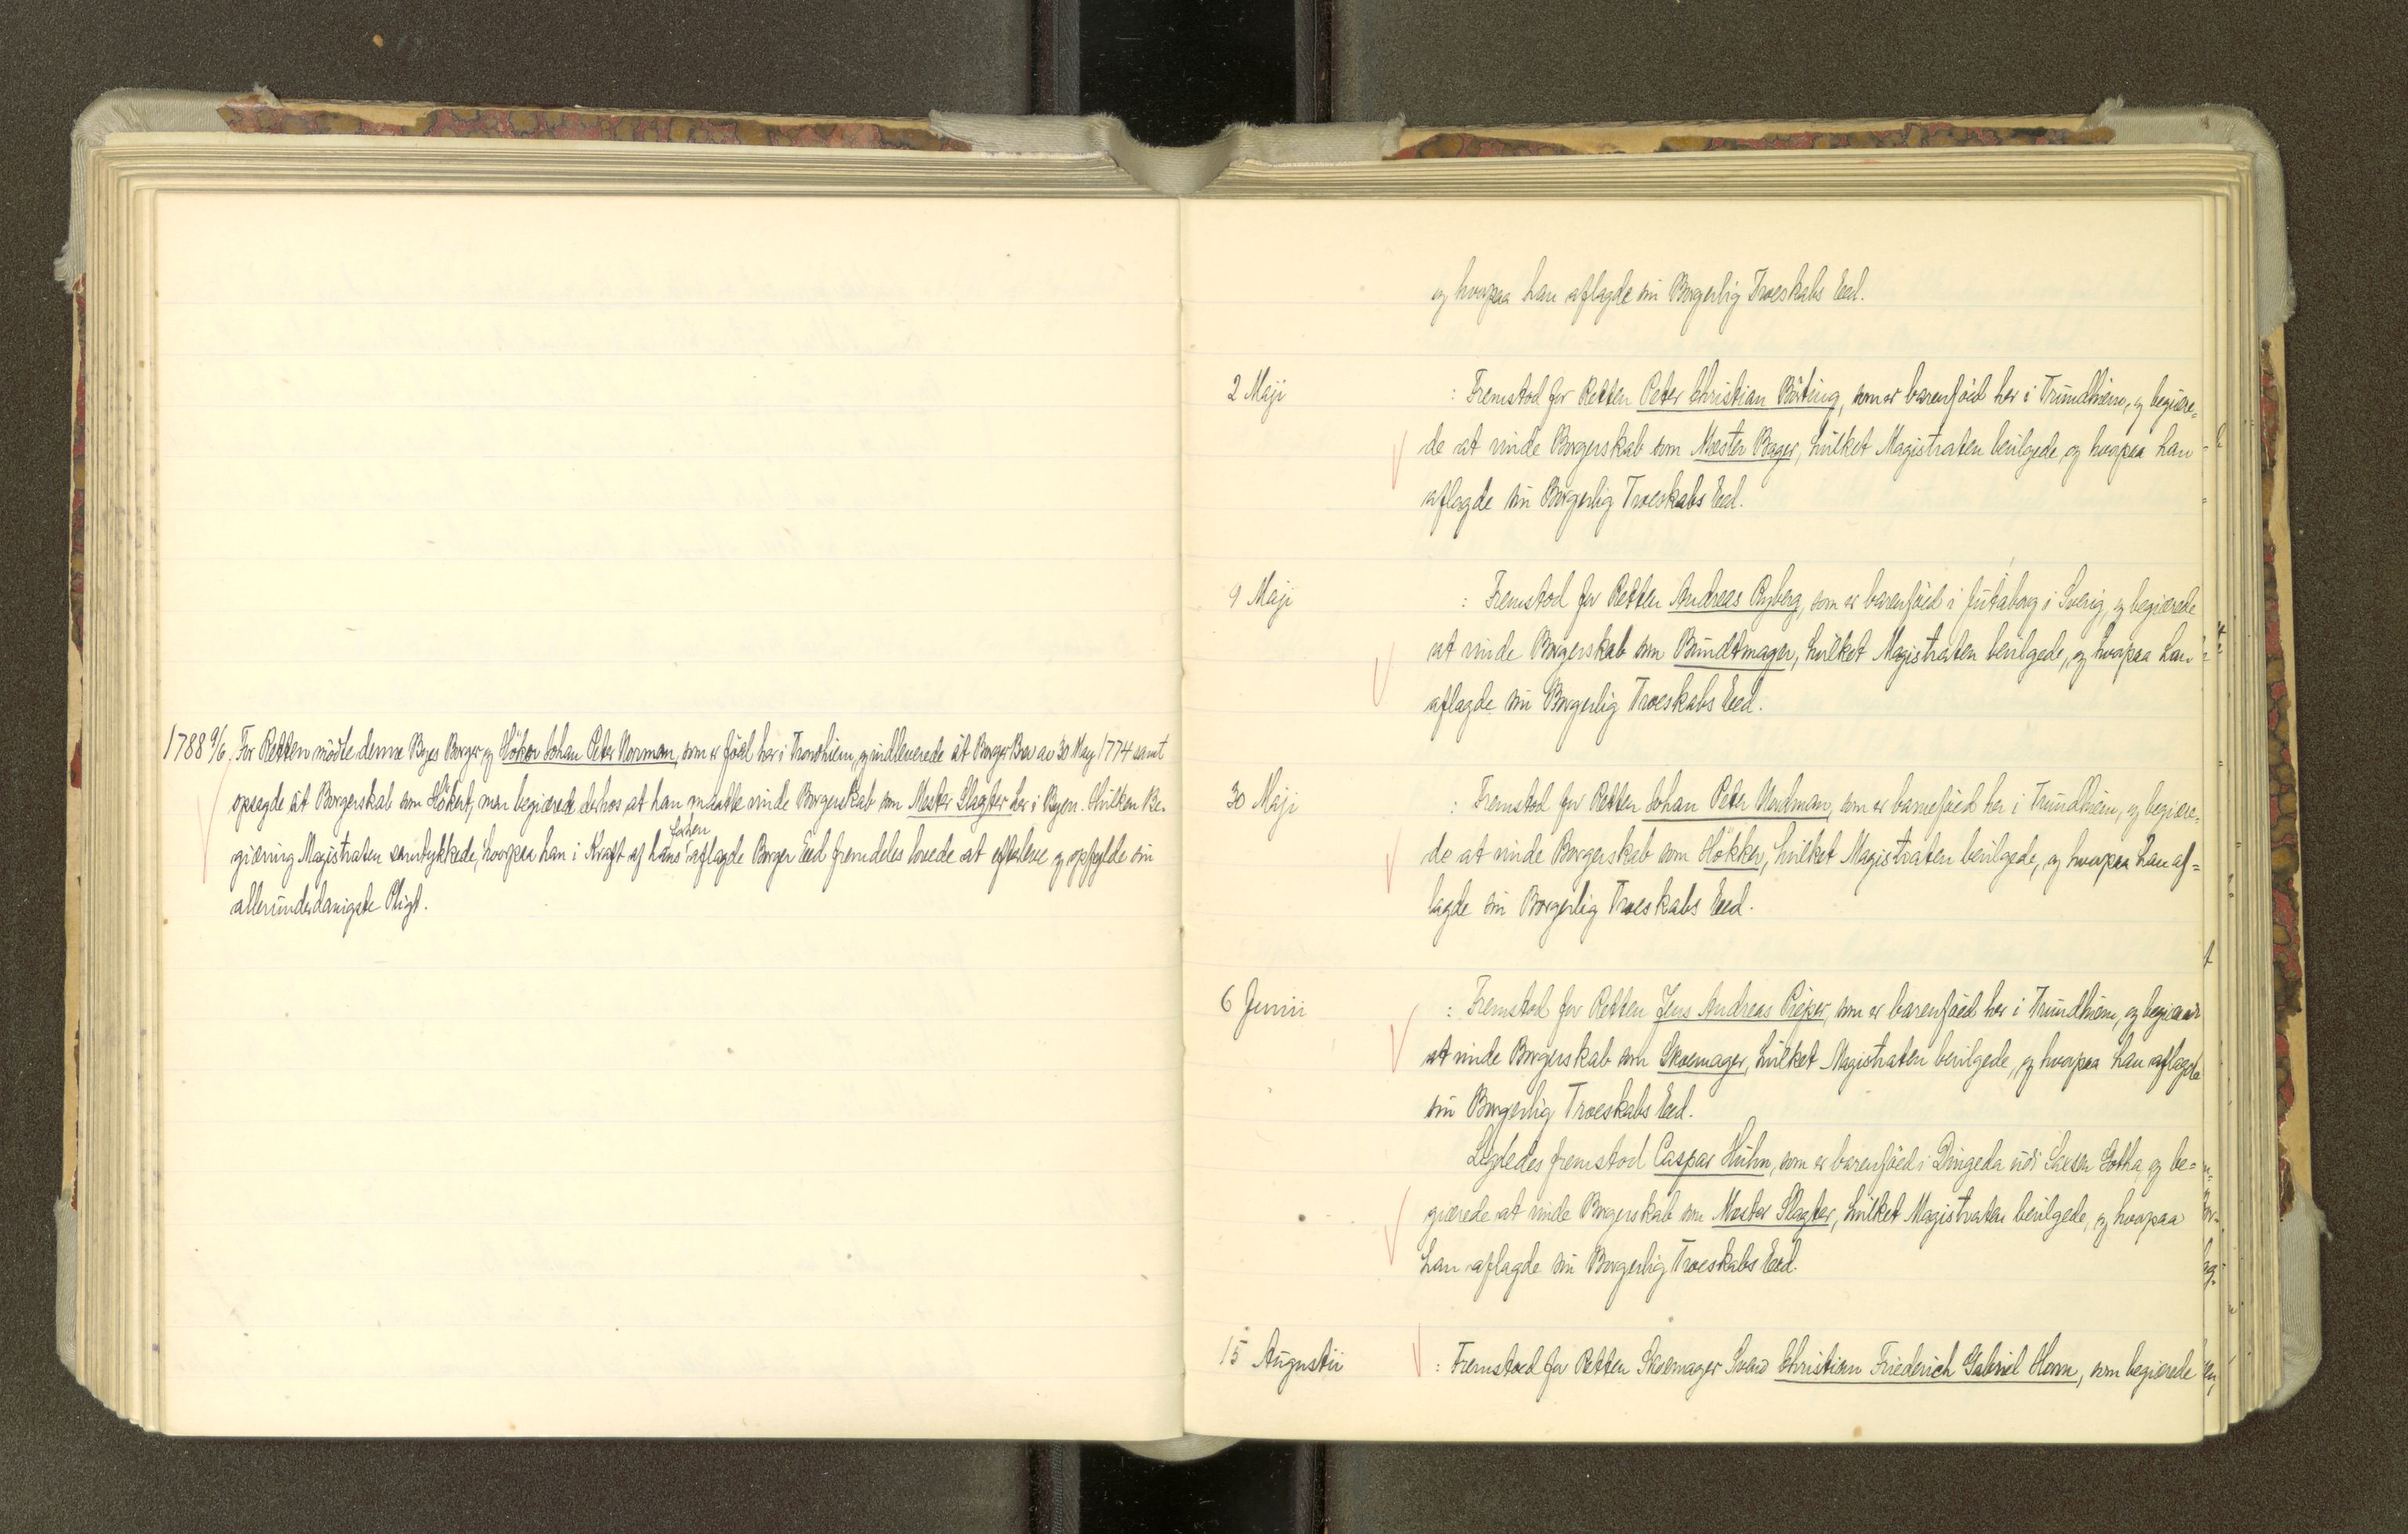 1788 9/6. For Retten mødte denne Byes Borger og Höker Johan Peter Norman, som er föed her i Trondhiem, og indleverede sit Borger Brev av 30 May 1774 samt
opsagde sit Borgerskab som Hökert, men begiærede derhos at han maatte vinde Borgerskab som Mester Slagter her i Byen. Hvilken Be-
giæring Magistraten samtykkede, hvorpaa han i Kraft af hans forhen aflagde Borger Eed fremdeles lovede at efterleve og opfylde sin
allerunderdanigste Pligt.
og hvorpaa han aflagde sin Borgerlig Troeskabs Eed.
2 Maji : Fremstod for Retten Peter Christian Börting, som er barenföed her i Trundhiem, og begiære=
de at vinde Borgerskab som Mester Bager, hvilket Magistraten bevilgede, og hvorpaa han
aflagde sin Borgerlig Troeskabs Eed.
9 Maji : Fremstod for Retten Andreas Ryberg, som er barenföed i Jütaborg i Sverig, og begiærede
at vinde Borgerskab som Bundtmager, hvilket Magistraten bevilgede, og hvorpaa han
aflagde sin Borgerlig Troeskabs Eed.
30 Maji : Fremstod for Retten Johan Peter Nordman, som er barneföed her i Trundhiem, og begiære=
de at vinde Borgerskab som Hökker, hvilket Magistraten bevilgede, og hvorpaa han af=
lagde sin Borgerlig Troeskabs Eed.
6 Junii : Fremstod for Retten Jens Andreas Pieper, som er barenföed her i Trundhiem, og begiærer
at vinde Borgerskab som Skoemager, hvilket Magistraten bevilgede, og hvorpaa han aflagde
sin Borgerlig Troeskabs Eed.
Ligeledes fremstod Caspar Huhn, som er barenföed i Dingeda udi Saxsen Gotha, og be=
giærede at vinde Borgerskab som Mester Slagter, hvilket Magistraten bevilgede, og hvorpaa
han aflagde sin Borgerlig Troeskabs Eed.
15 Augustii : Fremstoed for Retten Skoemager Svend Christian Friederich Gabriel Horn, som begiærede